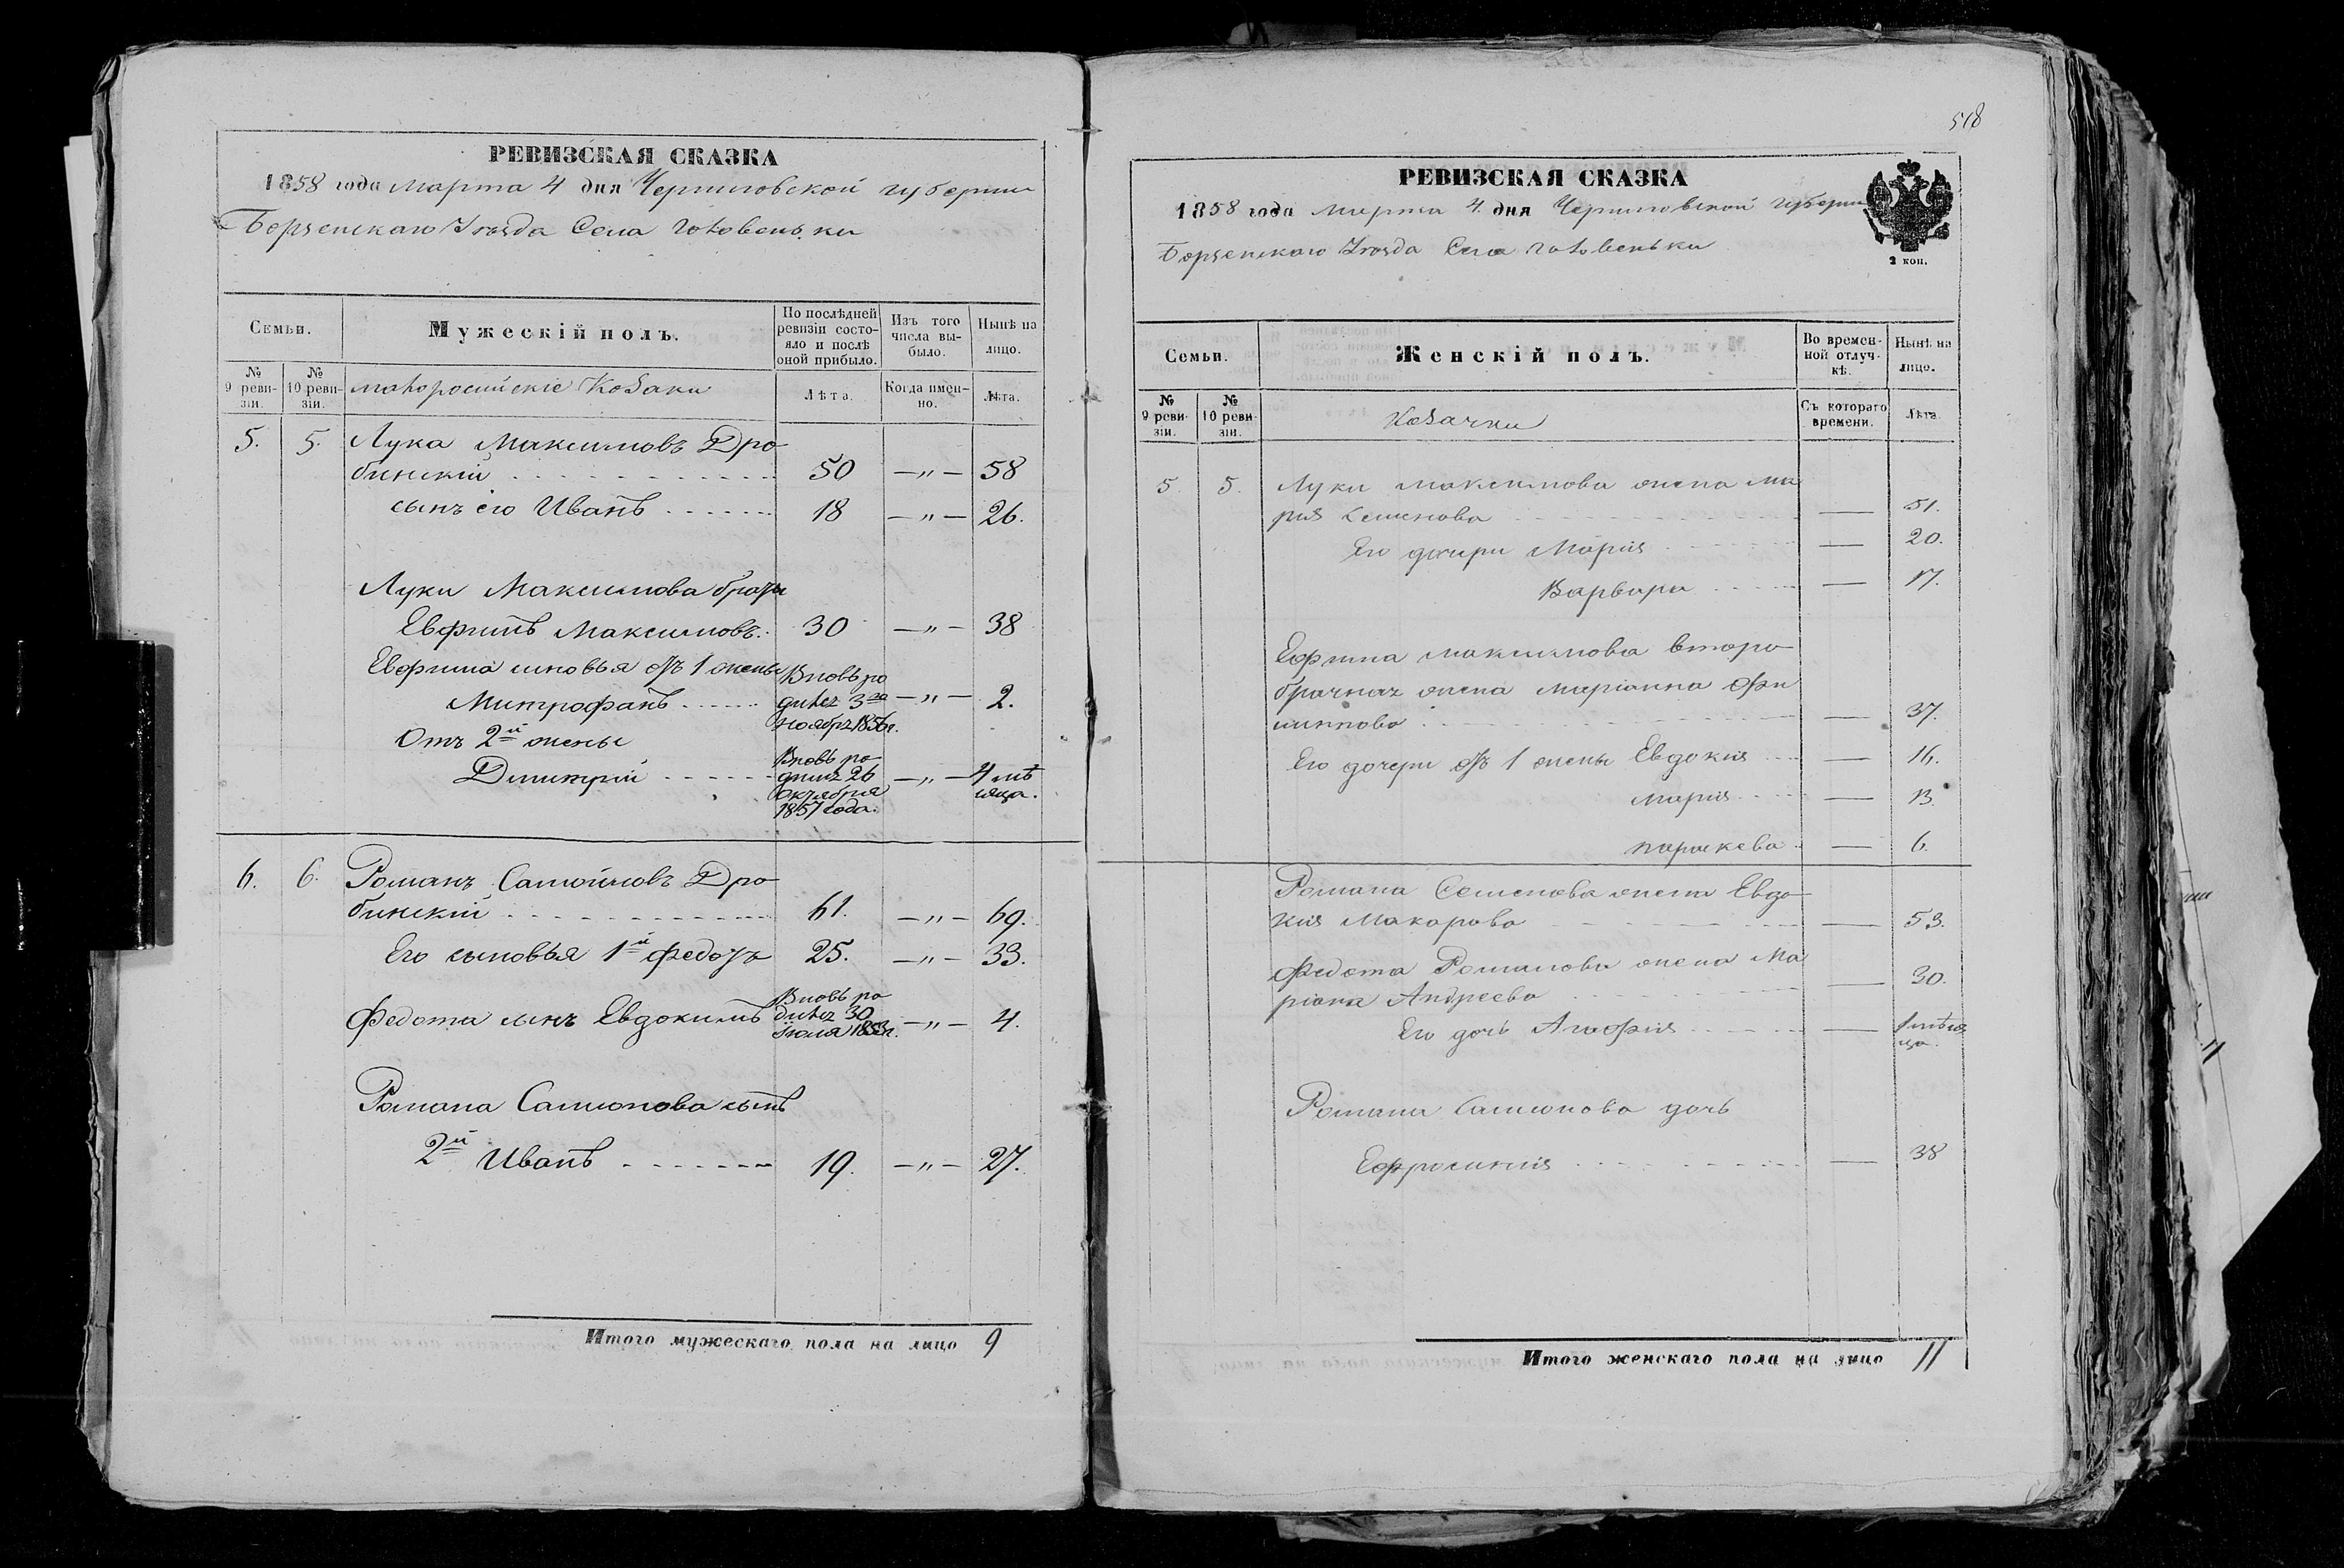 РЕВИЗСКАЯ СКАЗКА
1858 года марта 4 дня Черниговской губернии
Борзенскаго Уѣзда Села Головеньки
Семьи.
Мужескій полъ.
По послѣдней ревизіи состояло и послѣ оной прибыло.
Изъ того числа выбыло.
Нынѣ на лицо.
№ 9 ревизіи.
№ 10 ревизіи.
малороссійскіе Козаки
Лѣта.
Когда именно.
Лѣта.
5. 5. Лука Максимовъ Дро
бинскій 50 —„— 58
сынъ его Иванъ 18 —„— 26.
Луки Максимова братъ
Евфимъ Максимовъ. 30 —„— 38
Евфима сновья отъ 1 жены
Митрофанъ Вновь ро
дился 3го —„— 2.
Ноября 1856 г.
Отъ 2й жены
Дмитрій Вновь ро
дился 26 —„— 4 мѣ
Октября сяца.
1857 года.
6. 6. Романъ Самойловъ Дро
бинскій 61. —„— 69.
Его сыновья 1й Федотъ 25. —„— 33.
Федота сынъ Евдокимъ Вновь ро
дился 30 —„— 4.
Іюля 1853 г.
Романа Самсонова сынъ
2й Иванъ 19. —„— 27.
Итого мужескаго пола на лицо 9
518
РЕВИЗСКАЯ СКАЗКА
1858 года марта 4. дня Черниговской губернии
Борзенскаго Уѣзда Села Головеньки
2 коп.
Семьи.
Женскій полъ.
Во временной отлучкѣ.
Нынѣ на лицо.
№ 9 ревизіи.
№ 10 ревизіи.
Козачки
Съ котораго времени.
Лѣта.
5. 5. Луки Максимова жена Ма
рия Семенова — 51.
Его дочери Мария — 20.
Варвара — 17.
Ефима Максимова второ
брачная жена Маріанна Фи
липпова — 37.
Его дочери отъ 1 жены Евдокия — 16.
Мария — 13.
Параскева — 6.
Романа Семенова жена Евдо
кия Макарова — 53.
Федота Романова жена Ма
ріана Андреева — 30.
Его дочь Агафия — 1 мѣся
ца.
Романа Самсонова дочь
Ефросиния — 38
Итого женскаго пола на лицо 11